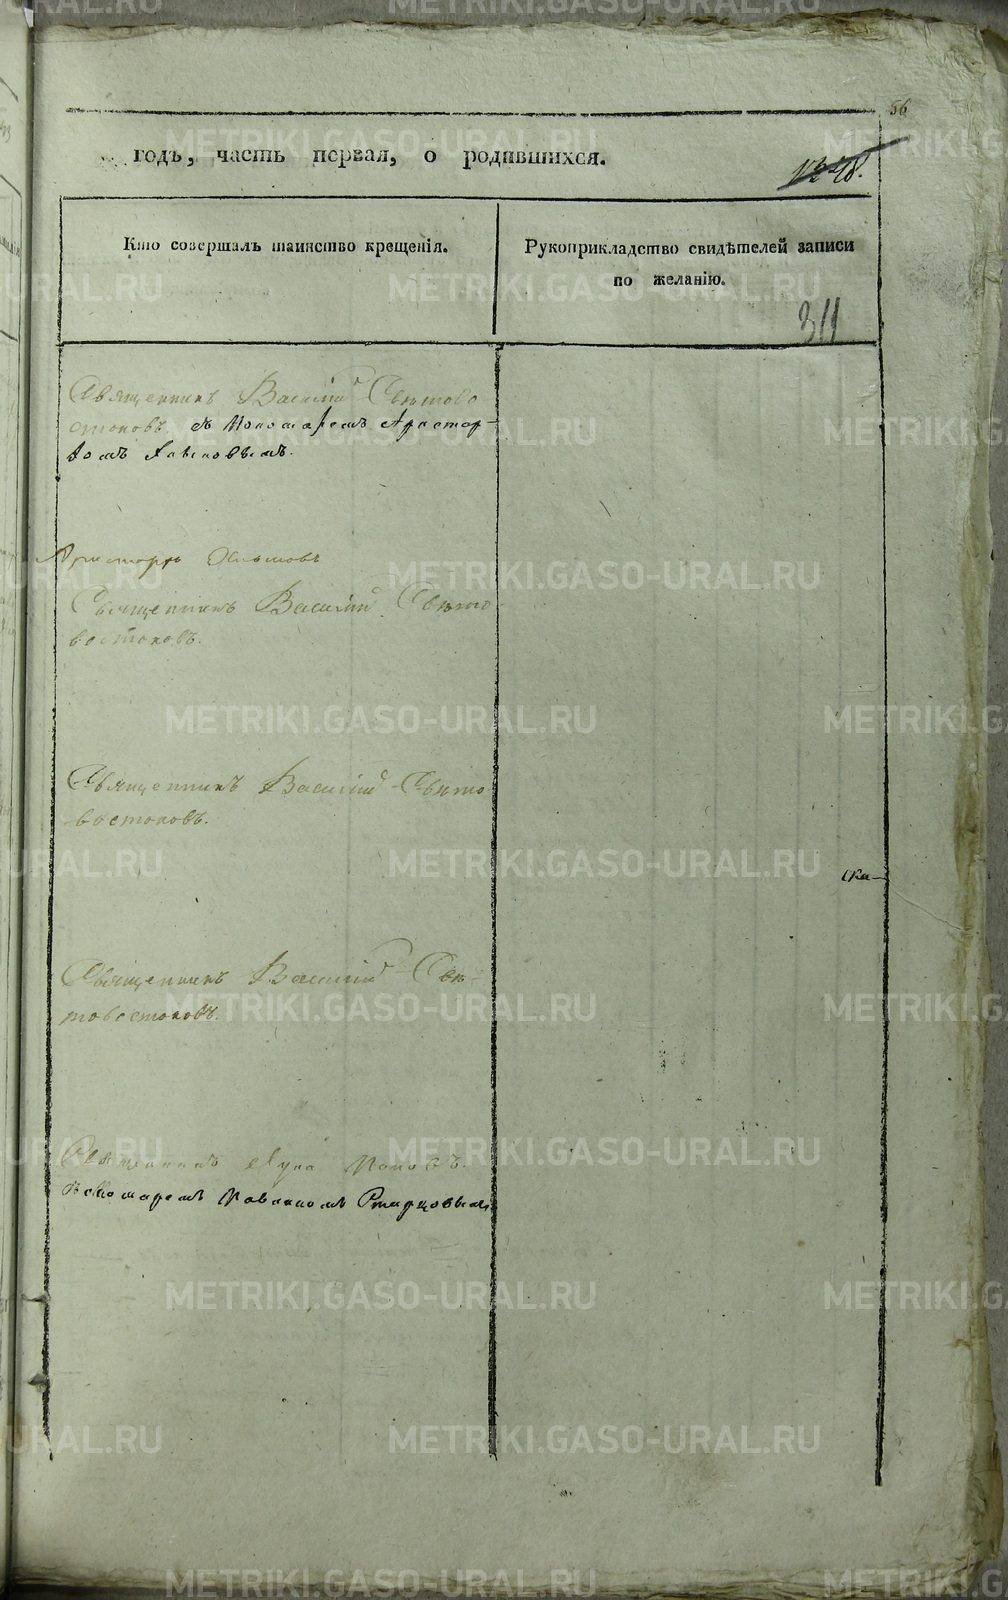 56
годъ, часть первая, о родившихся.
1248.
Кто совершалъ таинство крещенія.
Рукоприкладство свидѣтелей записи
по желанію.
311
Священникъ Василій Свѣтово
стоковъ съ Пономаремъ Аристар-
хомъ
Аристархъ
Священникъ Василій Свѣто-
востоковъ.
Священникъ Василій Свѣто
востоковъ.
Священникъ Василій Свѣ-
товостоковъ.
Священникъ Лука Поповъ.
METRIKI.GASO-URAL.RU